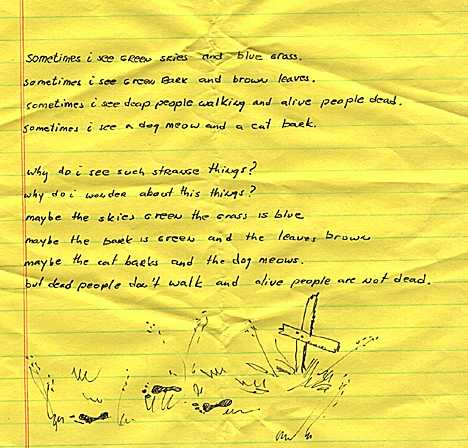 sometimes i see green skies and blue grass.
sometimes i see green bark and brown leaves.
sometimes i see daop people walking and alive people dead.
sometimes i see a dog meow and a cat bark.
why do i see such strange things?
why do i wonder about this things?
maybe the skies green the grass is blue
maybe the bark is green and the leaves brown
maybe the cat barks and the dog meows.
but dead people don't walk and alive people are not dead.